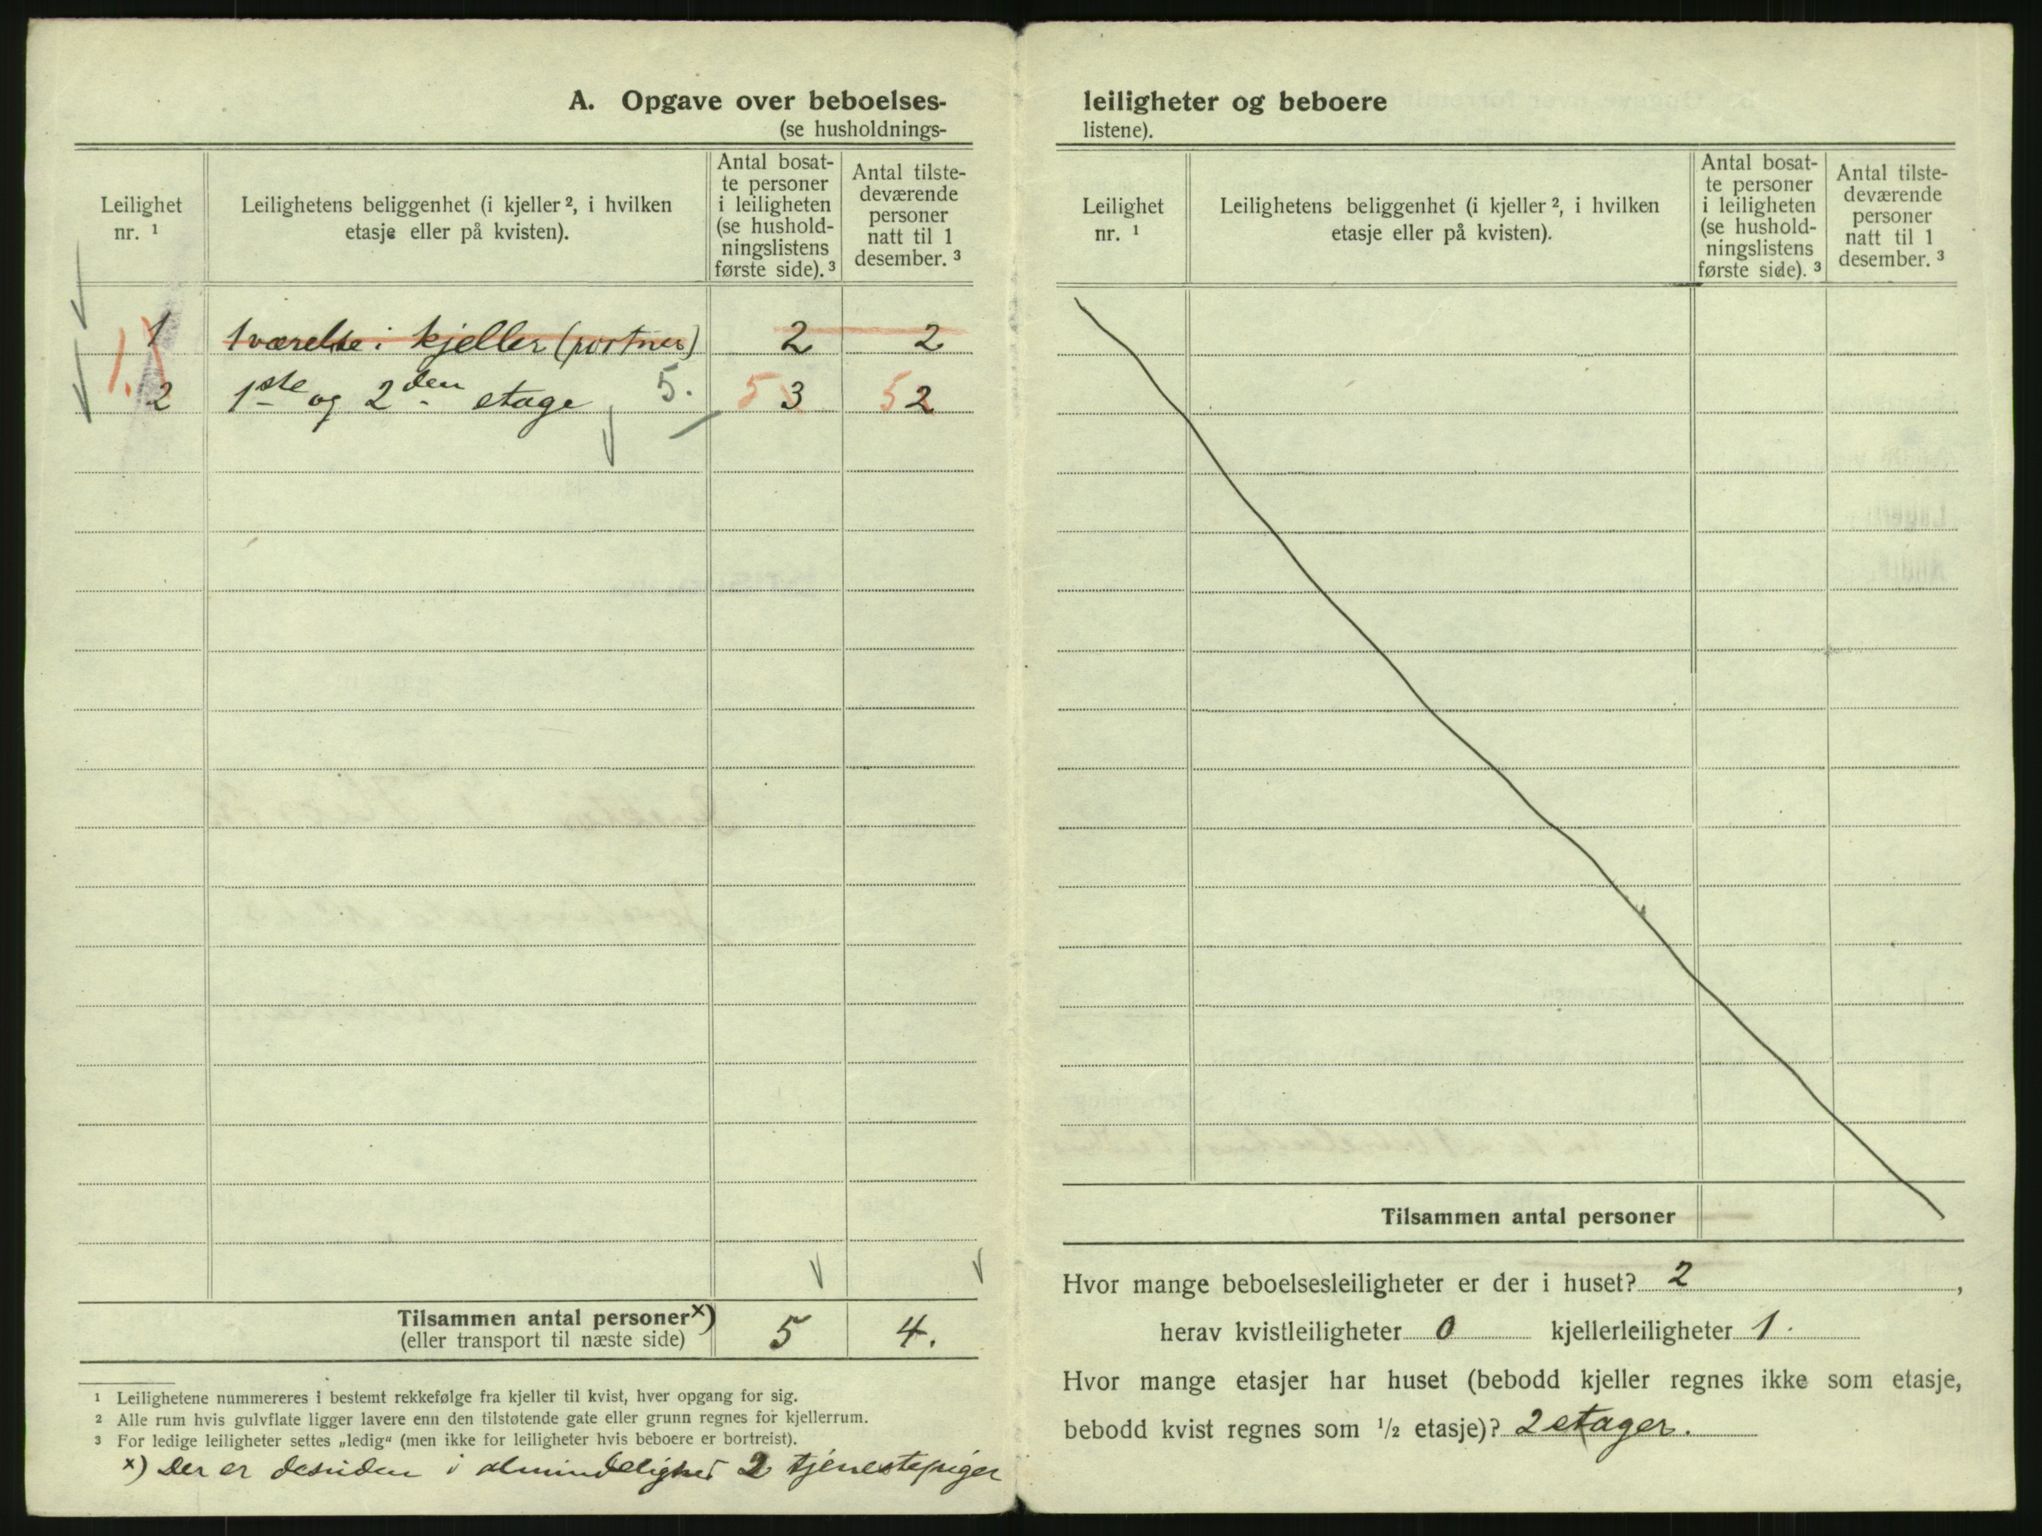 A. Opgave over beboelses-
(se husholdnings-
Leilighet
nr. 1
Leilighetens beliggenhet (i kjeller 2, i hvilken
etasje eller på kvisten).
Antal bosat-
te personer
i leiligheten
(se hushold-
ningslistens
første side). 3
Antal tilste-
deværende
personer
natt til 1
desember. 3
1 1 værelse i kjeller (portner) 2 2
1.) 2 1ste og 2den etage 5. 5 3 5 2
Tilsammen antal personer x) 5 4.
(eller transport til næste side)
1 Leilighetene nummereres i bestemt rekkefølge fra kjeller til kvist, hver opgang for sig.
2 Alle rum hvis gulvflate ligger lavere enn den tilstøtende gate eller grunn regnes for kjellerrum.
3 For ledige leiligheter settes „ledig“ (men ikke for leiligheter hvis beboere er bortreist).
x) Der er desuden i almindelighed 2 tjenestepiger
leiligheter og beboere
listene).
Leilighet
nr. 1
Leilighetens beliggenhet (i kjeller 2, i hvilken
etasje eller på kvisten).
Antal bosat-
te personer
i leiligheten
(se hushold-
ningslistens
første side). 3
Antal tilste-
deværende
personer
natt til 1
desember. 3
Tilsammen antal personer
Hvor mange beboelsesleiligheter er der i huset? 2 ,
herav kvistleiligheter 0 kjellerleiligheter 1.
Hvor mange etasjer har huset (bebodd kjeller regnes ikke som etasje,
bebodd kvist regnes som 1/2 etasje)? 2 etager.